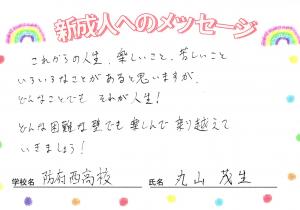 新成人へのメッセージ
これからの人生、楽しいこと、苦しいこと
いろいろなことがあると思いますが、
どんなことでも それが人生!
どんな困難な壁でも楽しんで乗り越えて
いきましょう!
学校名 防府西高校 氏名 丸山 茂生